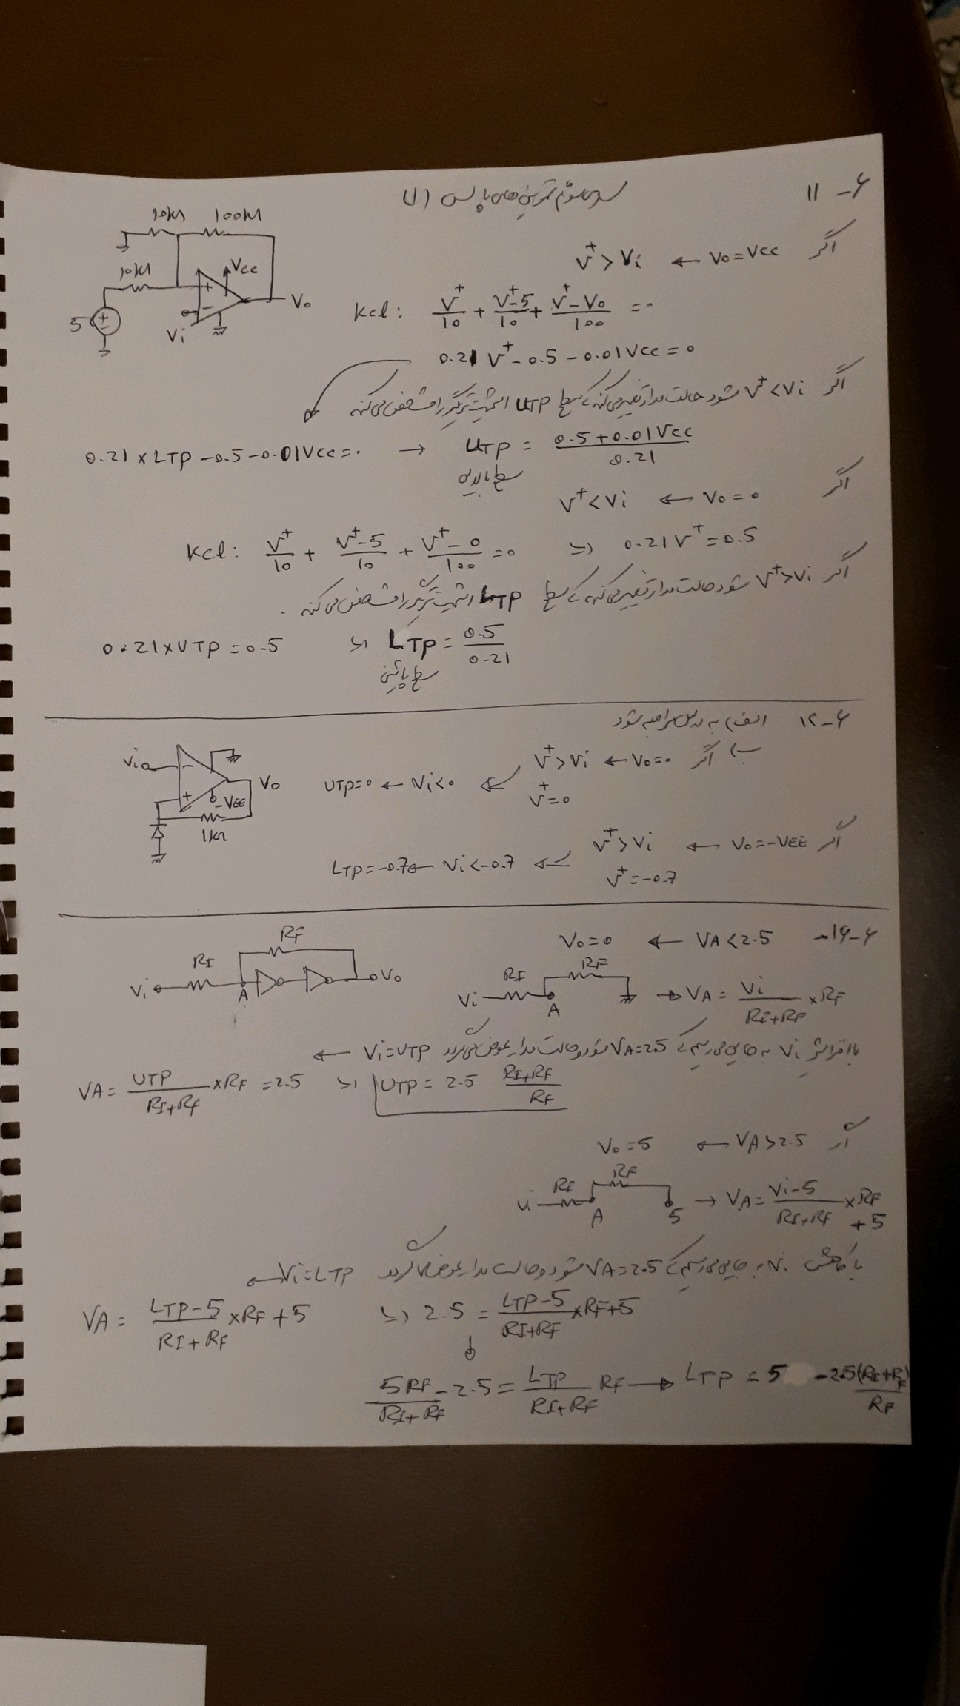 ۶-۱۱
سری سوم تمرین های پالس (۱
10kΩ 100kΩ
اگر Vo=Vcc → V⁺>Vi
10kΩ Vcc Vo
5 Vi
Kcl: V⁺/10 + V⁺-5/10 + V⁺-Vo/100 = ۰
0.21 V⁺ - 0.5 - 0.01Vcc = 0
اگر V⁺<Vi شود حالت مدار تغییر می‌کند که سطح UTP اشمیت تریگر را مشخص می‌کند
0.21 x LTP - 0.5 - 0.01Vcc = ۰ → UTP = 0.5+0.01Vcc/0.21
سطح بالایی
اگر Vo=0 → V⁺<Vi
Kcl: V⁺/10 + V⁺-5/10 + V⁺-0/100 = 0 => 0.21V⁺=0.5
اگر V⁺>Vi شود حالت مدار تغییر می‌کند که سطح LTP اشمیت تریگر را مشخص می‌کند.
0.21xUTP = 0.5 => LTP = 0.5/0.21
سطح پائین
۶-۱۲ الف) به شود
Vi Vo -VEE 1kΩ
ب) اگر Vo=0 → V⁺>Vi
V⁺=0 Vi<0 → UTP=0
اگر Vo=-VEE → V⁺>Vi
V⁺=-0.7 Vi<-0.7 LTP=-0.7
۶-۱۹
VA<2.5 → Vo=0
Vi RI A RF Vo
Vi RI A RF → VA = Vi/RI+RF xRF
با افزایش Vi به جایی می‌رسیم که VA=2.5 شود و حالت مدار عوض می‌گردد Vi=UTP ←
VA = UTP/RI+RF xRF = 2.5 => UTP = 2.5 RI+RF/RF
اگر VA>2.5 → Vo=5
Vi RI A RF 5 → VA = Vi-5/RI+RF xRF +5
با کاهش Vi به جایی می‌رسیم که VA=2.5 شود و حالت مدار عوض می‌گردد Vi=LTP ←
VA = LTP-5/RI+RF xRF+5 => 2.5 = LTP-5/RI+RF xRF+5
5RF/RI+RF - 2.5 = LTP/RI+RF RF → LTP = 5 - 2.5(RI+RF)/RF